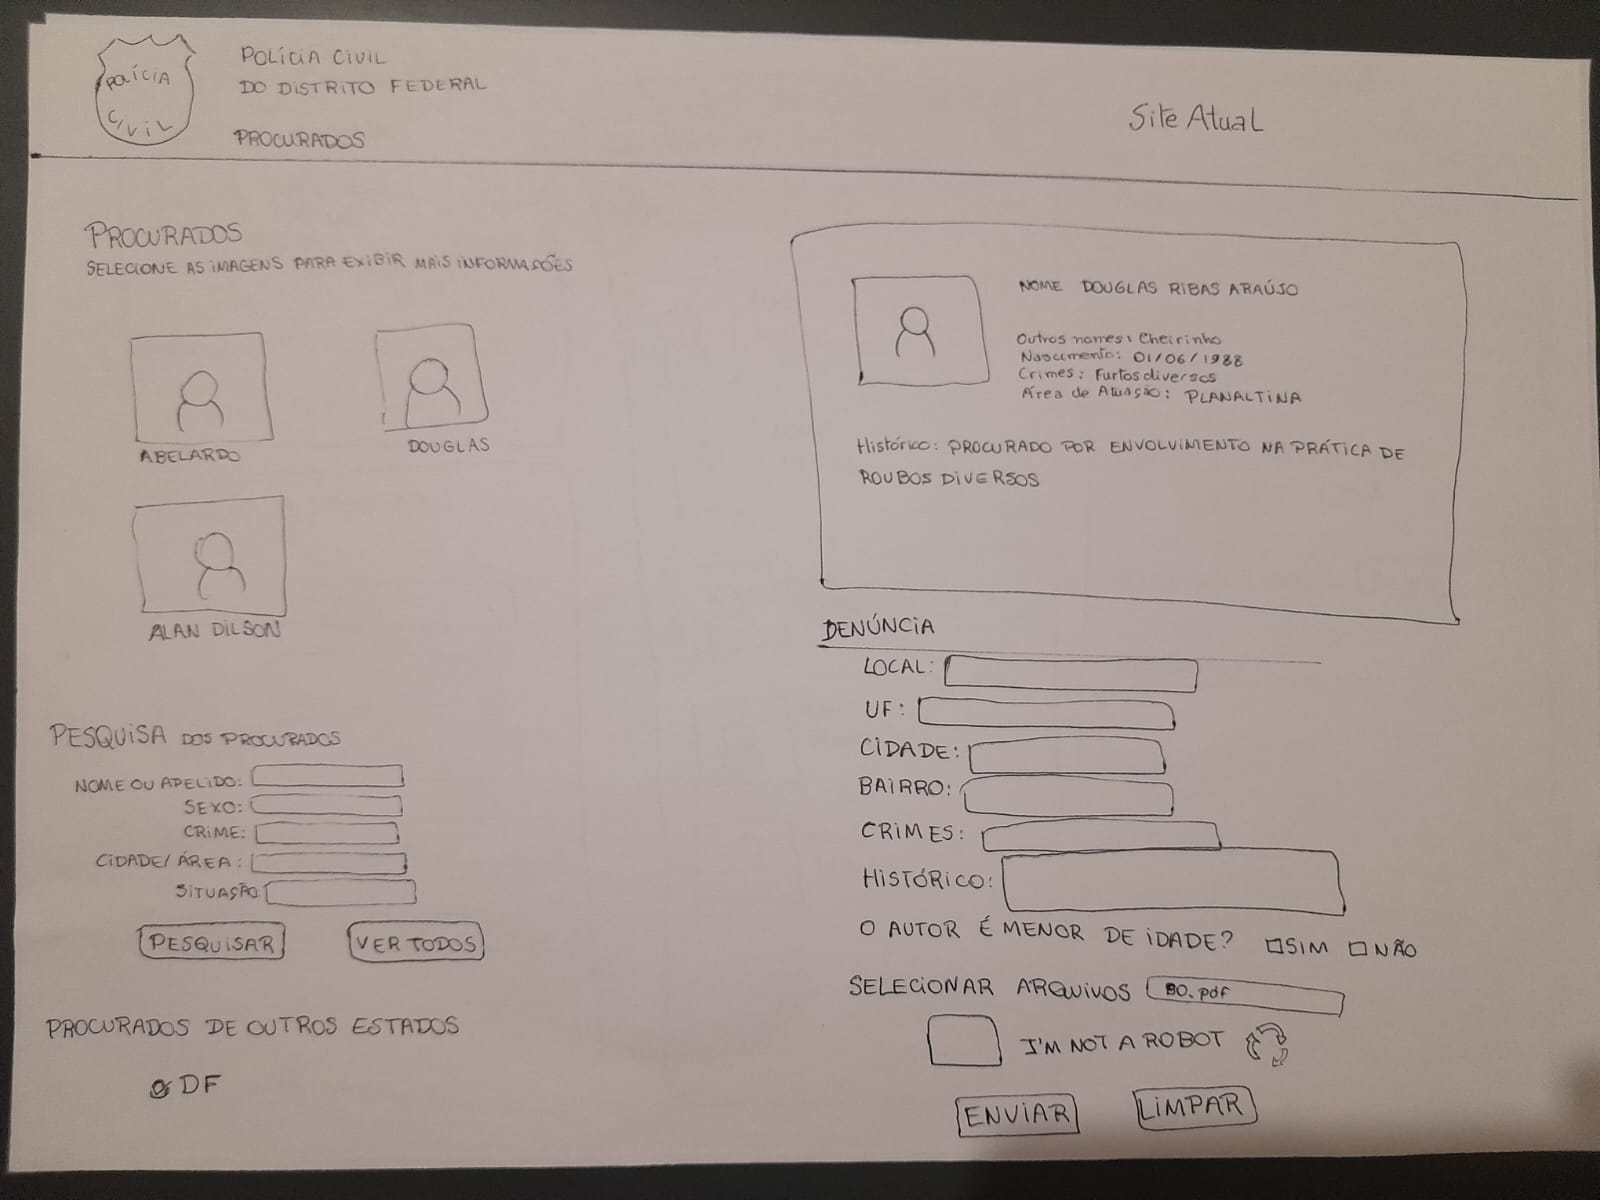 POLÍCIA
CIVIL
POLÍCIA CIVIL
DO DISTRITO FEDERAL
PROCURADOS
Site Atual
PROCURADOS
SELECIONE AS IMAGENS PARA EXIBIR MAIS INFORMAÇÕES
ABELARDO
DOUGLAS
ALAN DILSON
PESQUISA DOS PROCURADOS
NOME OU APELIDO:
SEXO:
CRIME:
CIDADE/ ÁREA:
SITUAÇÃO
PESQUISAR
VER TODOS
PROCURADOS DE OUTROS ESTADOS
DF
NOME DOUGLAS RIBAS ARAÚJO
Outros nomes: Cheirinho
Nascimento: 01/06/1988
Crimes: Furtos diversos
Área de Atuação: PLANALTINA
Histórico: PROCURADO POR ENVOLVIMENTO NA PRÁTICA DE
ROUBOS DIVERSOS
DENÚNCIA
LOCAL:
UF:
CIDADE:
BAIRRO:
CRIMES:
HISTÓRICO:
O AUTOR É MENOR DE IDADE? SIM NÃO
SELECIONAR ARQUIVOS BO.pdf
I'M NOT A ROBOT
ENVIAR
LIMPAR